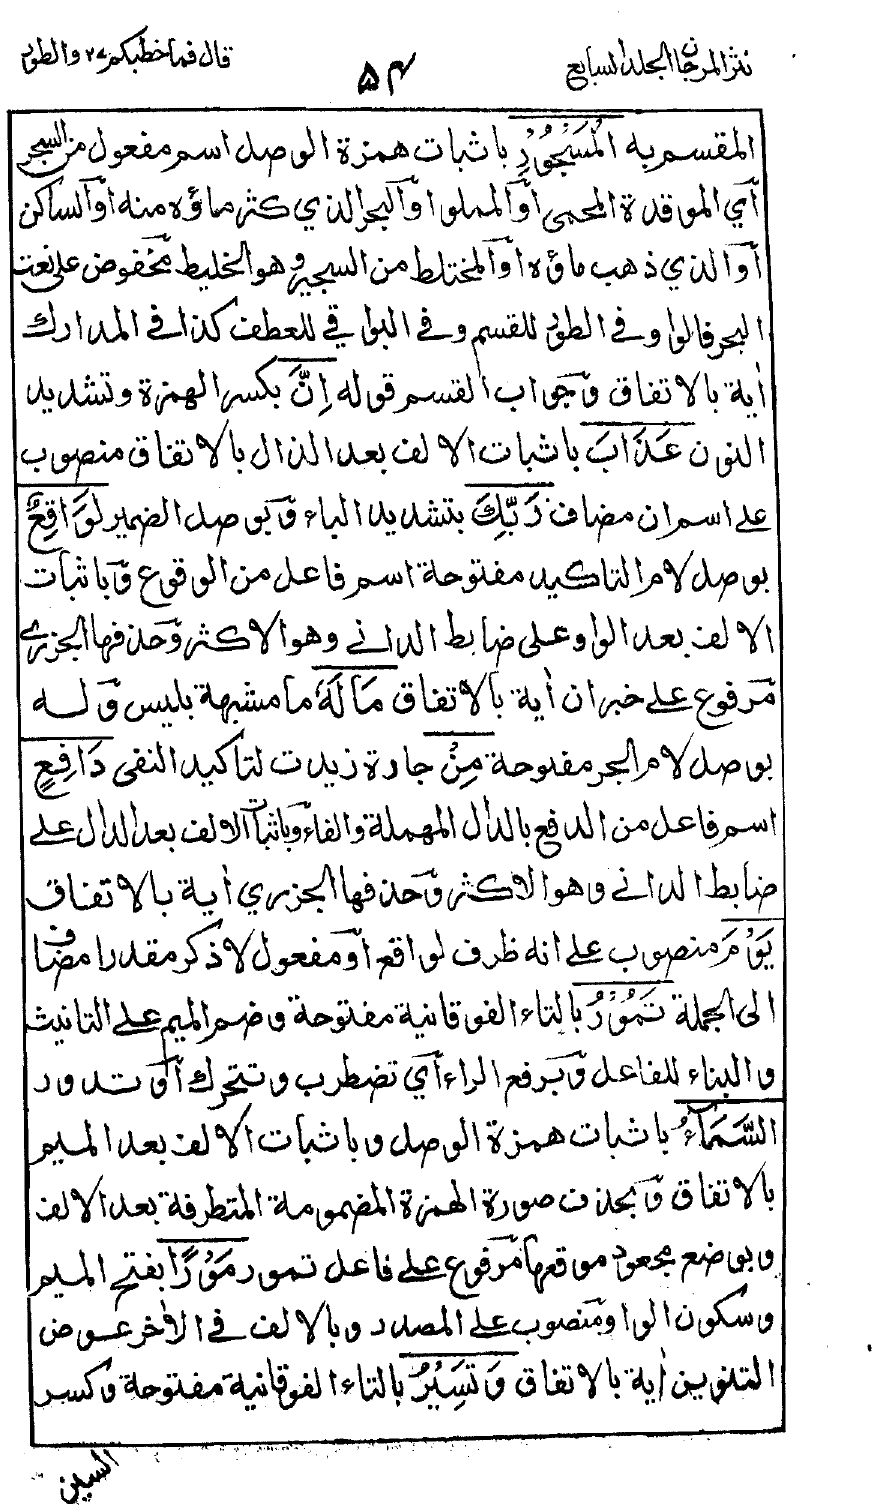 نثر المرجان الجلد السابع
٥٤
قال فما خطبكم ٢٧ والطور
المقسم به الْمَسْجُوْرِ باثبات همزة الوصل اسم مفعول من السجر
أي الموقدة المحمى او المملوا والبحر الذي كثر ماؤه منه او الساكن
او الذي ذهب ماؤه او المختلط من السجير وهو الخليط مخفوض على نعت
البحر قالوا وفي الطور للقسم وفي البواقي للعطف كذا في المدارك
اٰية بالاتفاق وجواب القسم قوله اِنَّ بكسر الهمزة وتشديد
النون عَذَابَ باثبات الالف بعد الذال بالاتفاق منصوب
على اسم ان مضاف رَبِّكَ بتشديد الباء وبوصل الضمير لَوَاقِعٌ
بوصل لام التاكيد مفتوحة اسم فاعل من الوقوع وباثبات
الالف بعد الواو على ضابط الداني وهو الاكثر وحذفها الجزري
مرفوع على خبر ان اٰية بالاتفاق مَا لَهٗ ما مشبهة بليس وله
بوصل لام الجر مفتوحة مِنْ جارة زيدت لتاكيد النفى دَافِعٍ
اسم فاعل من الدفع بالدال المهملة والفاء وباثبات الالف بعد الدال على
ضابط الداني وهو الاكثر وحذفها الجزري اٰية بالاتفاق
يَوْمَ منصوب على انه ظرف لواقع او مفعول لاذكر مقدرا مضاف
الى الجملة تَمُوْرُ بالتاء الفوقانية مفتوحة وضم الميم على التانيث
والبناء للفاعل وبرفع الراء أي تضطرب وتتحرك او تدور
السَّمَآءُ باثبات همزة الوصل وباثبات الالف بعد الميم
بالاتفاق وبحذف صورة الهمزة المضمومة المتطرفة بعد الالف
وبوضع مجعود موقعها مرفوع على فاعل تمور مَوْرًا بفتح الميم
وسكون الواو ومنصوب على المصدر وبالالف في الاٰخر عوض
التنوين اٰية بالاتفاق وَتَسِيْرُ بالتاء الفوقانية مفتوحة وكسر
السين